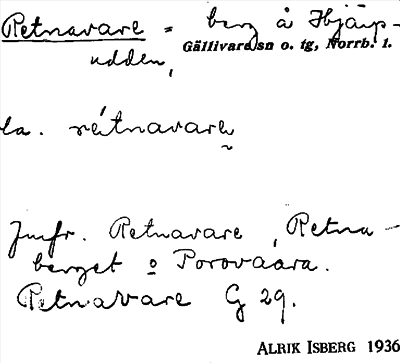 Retnavare = berg å Hjärp-
Gällivare sn o. tg, Norrb. l.
udden,
la. rétnavarɛ
Jmfr. Retnavare, Retna-
berget o Porovaara.
Retnavare G 29.
ALRIK ISBERG 1936